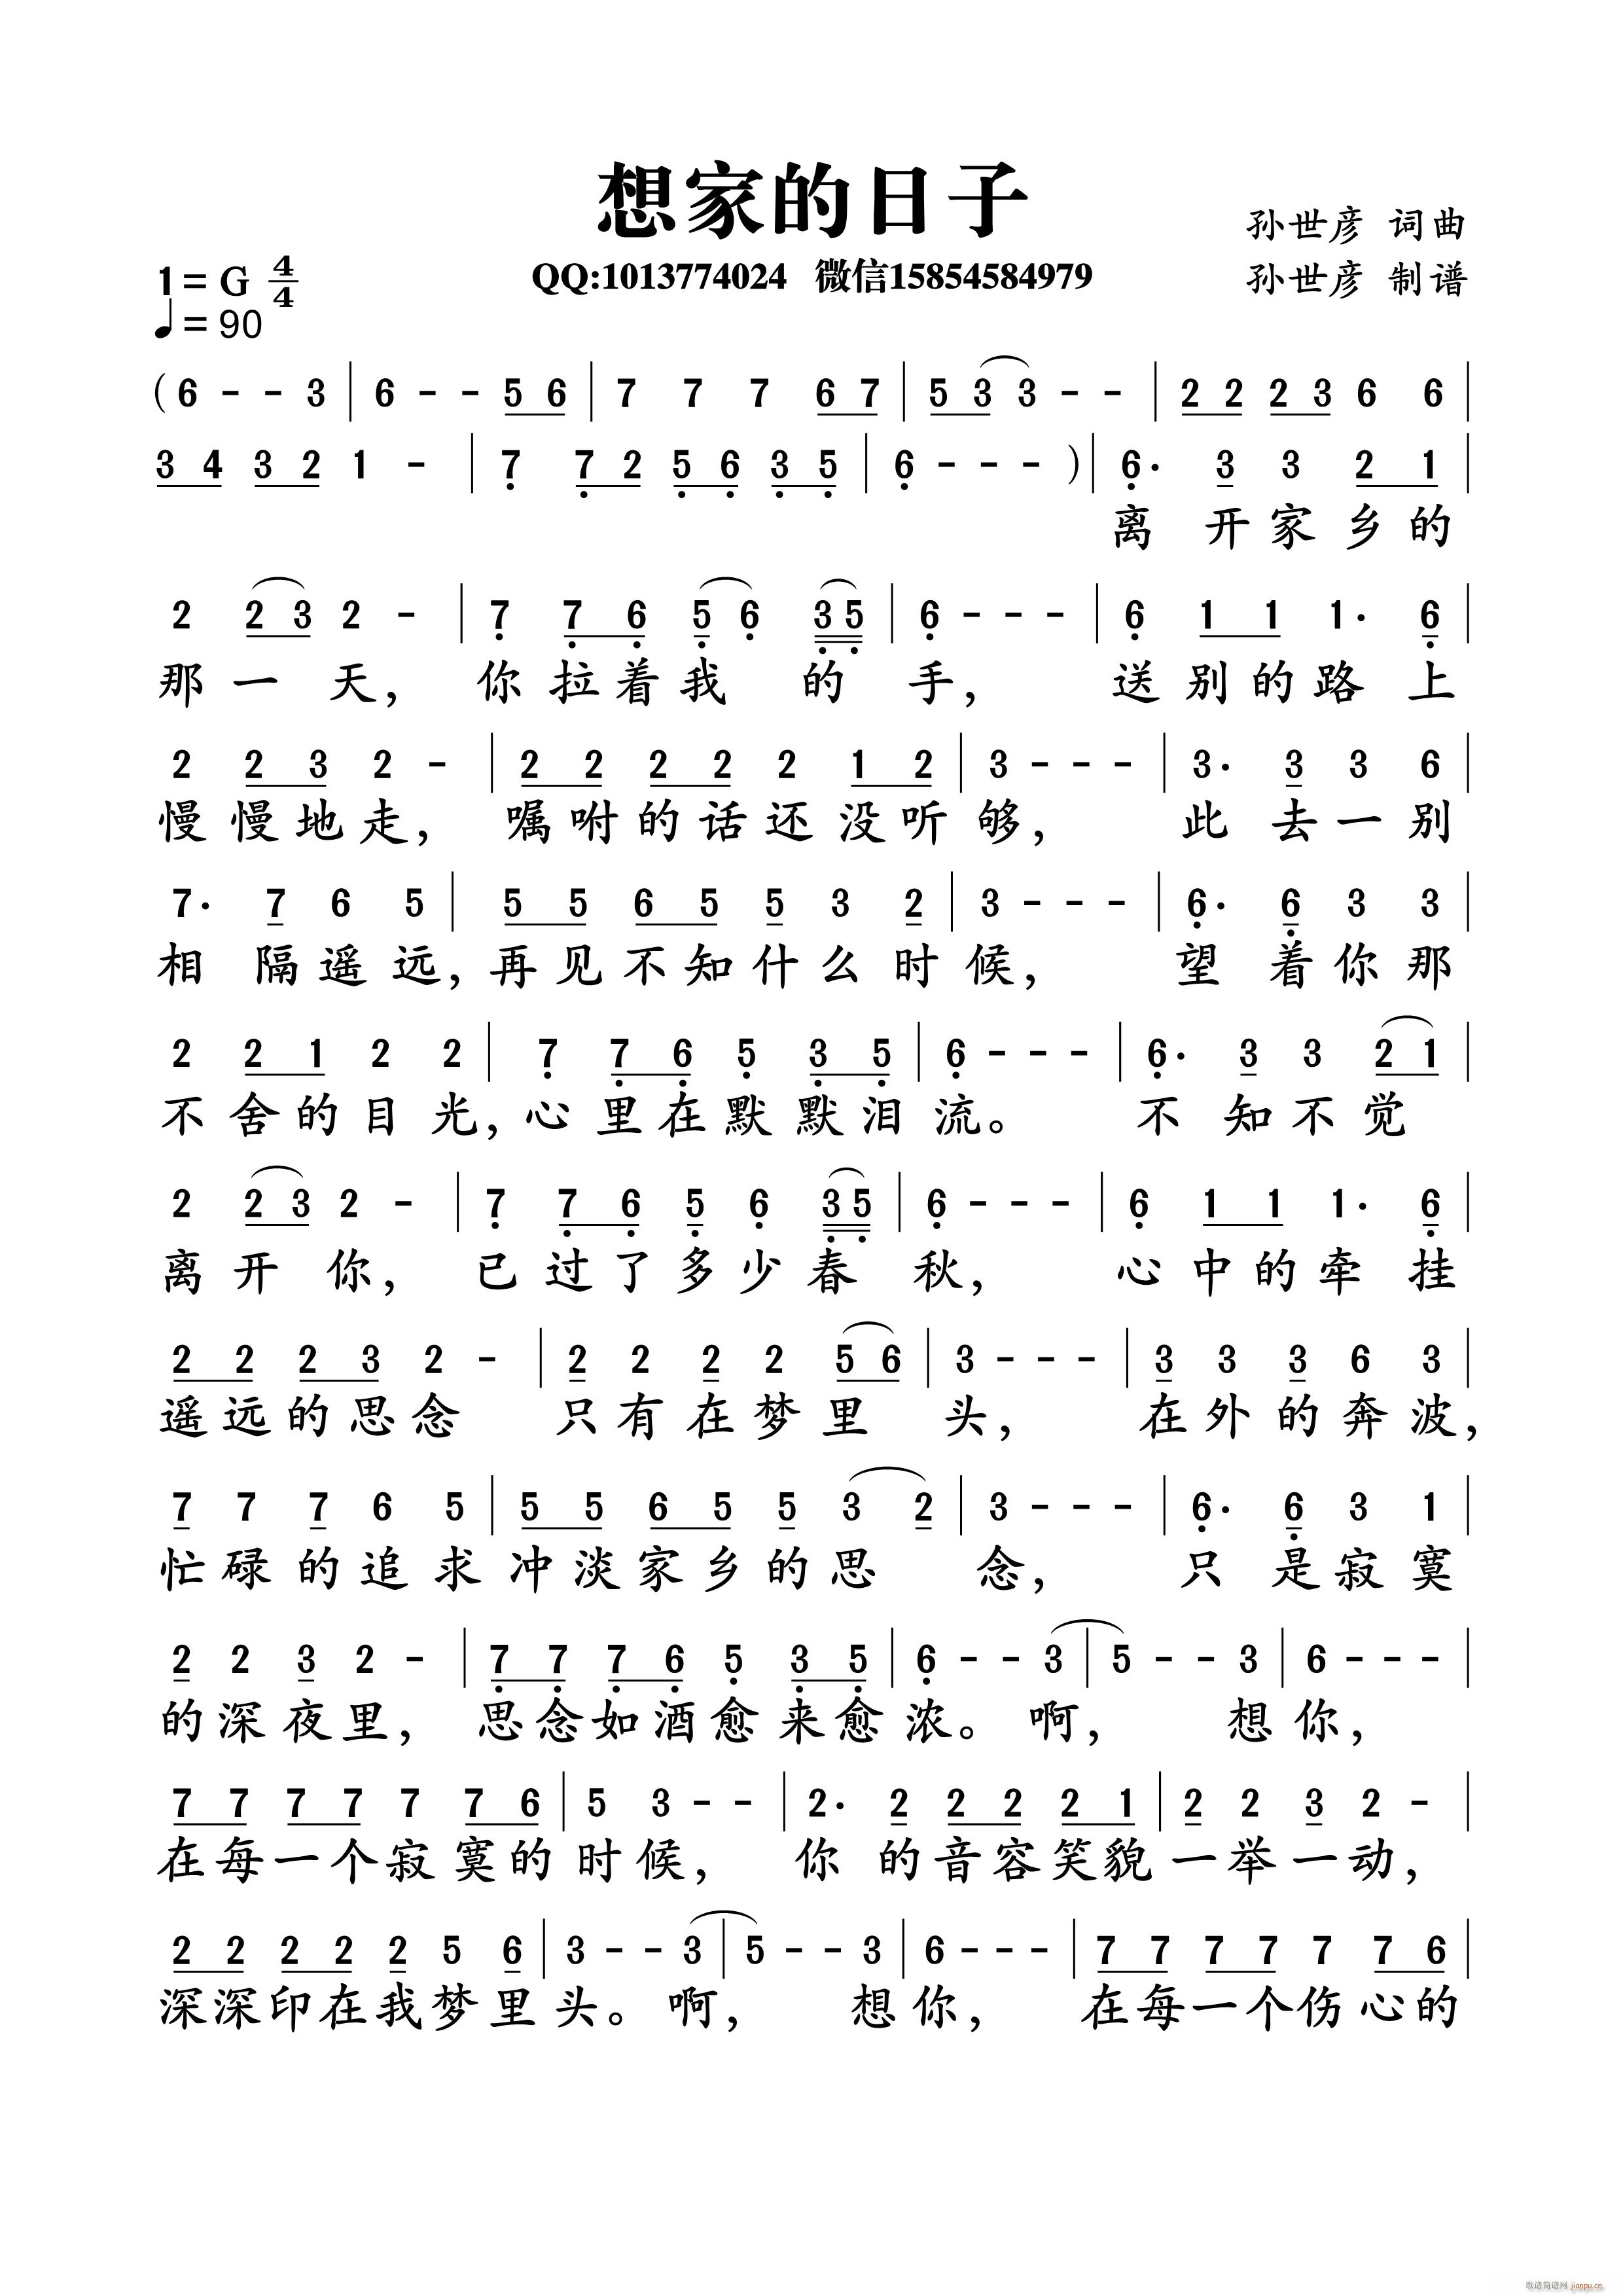 想家的日子
孙世彦 词曲
1=G 4/4
QQ:1013774024 微信15854584979
孙世彦 制谱
♩=90
(6 - - 3 | 6 - - 5 6 | 7 7 7 6 7 | 5 3 3 - - | 2 2 2 3 6 6 |
3 4 3 2 1 - | 7 7 2 5 6 3 5 | 6 - - - )| 6. 3 3 2 1 |
离 开 家 乡 的
2 2 3 2 - | 7 7 6 5 6 3 5 | 6 - - - | 6 1 1 1. 6 |
那 一 天, 你 拉 着 我 的 手, 送 别 的 路 上
2 2 3 2 - | 2 2 2 2 2 1 2 | 3 - - - | 3. 3 3 6 |
慢 慢 地 走, 嘱 咐 的 话 还 没 听 够, 此 去 一 别
7. 7 6 5 | 5 5 6 5 5 3 2 | 3 - - - | 6. 6 3 3 |
相 隔 遥 远, 再 见 不 知 什 么 时 候, 望 着 你 那
2 2 1 2 2 | 7 7 6 5 3 5 | 6 - - - | 6. 3 3 2 1 |
不 舍 的 目 光, 心 里 在 默 默 泪 流。 不 知 不 觉
2 2 3 2 - | 7 7 6 5 6 3 5 | 6 - - - | 6 1 1 1. 6 |
离 开 你, 已 过 了 多 少 春 秋, 心 中 的 牵 挂
2 2 2 3 2 - | 2 2 2 2 5 6 | 3 - - - | 3 3 3 6 3 |
遥 远 的 思 念 只 有 在 梦 里 头, 在 外 的 奔 波,
7 7 7 6 5 | 5 5 6 5 5 3 2 | 3 - - - | 6. 6 3 1 |
忙 碌 的 追 求 冲 淡 家 乡 的 思 念, 只 是 寂 寞
2 2 3 2 - | 7 7 7 6 5 3 5 | 6 - - 3 | 5 - - 3 | 6 - - - |
的 深 夜 里, 思 念 如 酒 愈 来 愈 浓。 啊, 想 你,
7 7 7 7 7 7 6 | 5 3 - - | 2. 2 2 2 2 1 | 2 2 3 2 - |
在 每 一 个 寂 寞 的 时 候, 你 的 音 容 笑 貌 一 举 一 动,
2 2 2 2 2 5 6 | 3 - - 3 | 5 - - 3 | 6 - - - | 7 7 7 7 7 7 6 |
深 深 印 在 我 梦 里 头。 啊, 想 你, 在 每 一 个 伤 心 的
歌谱简谱网 jianpu.cn